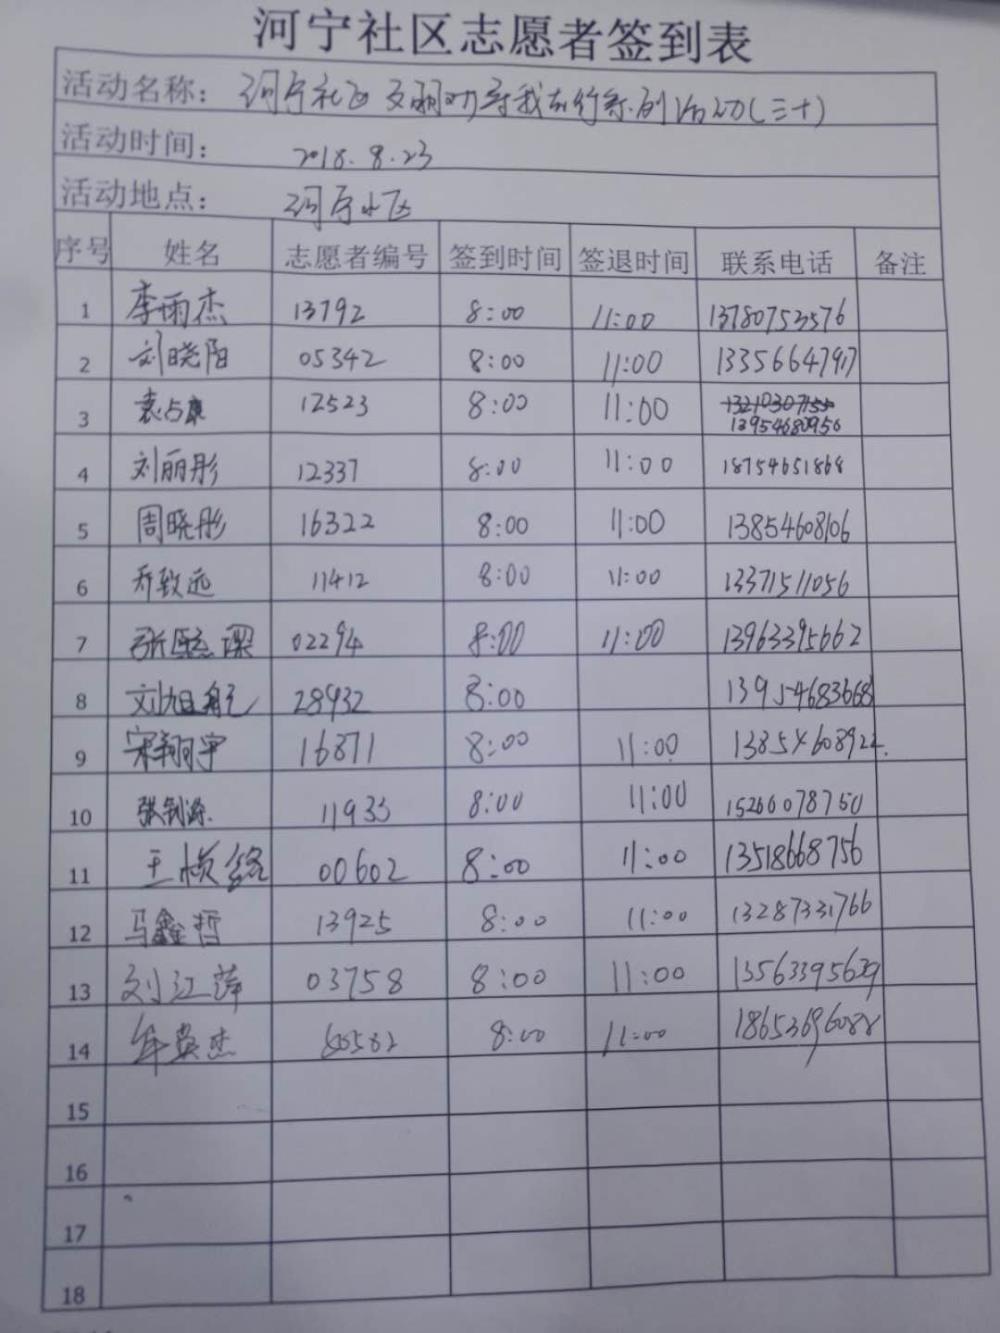 河宁社区志愿者签到表
活动名称: 河宁社区文明劝导我在行系列活动(三十)
活动时间: 2018.8.23
活动地点: 河宁小区
序号 姓名 志愿者编号 签到时间 签退时间 联系电话 备注
1 李雨杰 13792 8:00 11:00 13780753576
2 刘晓阳 05342 8:00 11:00 13356647917
3 袁占康 12523 8:00 11:00 13210307155
13954680950
4 刘丽彤 12337 8:00 11:00 18754651868
5 周晓彤 16322 8:00 11:00 13854608106
6 乔致远 11412 8:00 11:00 13371511056
7 张 02294 8:00 11:00 13963395662
8 刘旭航 28932 8:00 13954683668
9 宋翔宇 16871 8:00 11:00 13854608922
10 张钊源 11933 8:00 11:00 15266078750
11 王 00602 8:00 11:00 13518668756
12 马鑫哲 13925 8:00 11:00 13287331766
13 刘江萍 03758 8:00 11:00 13563395639
14 英杰 8:00 11:00 18653696088
15
16
17
18